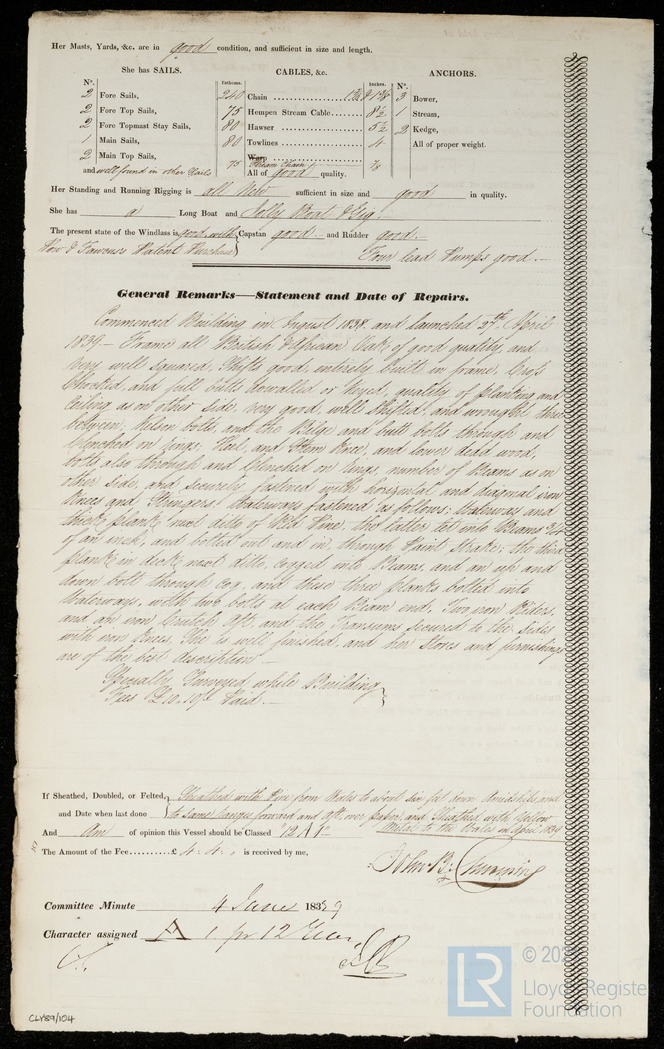 Her Masts, Yards, &c. are in good condition, and sufficient in size and length.
She has SAILS. CABLES, &c. ANCHORS.
Nº. Fathoms. Inches. Nº.
2 Fore Sails, 240 Chain 3 Bower,
2 Fore Top Sails, 75 Hempen Stream Cable 8½ 1 Stream,
2 Fore Topmast Stay Sails, 80 Hawser 5½ 2 Kedge,
1 Main Sails, 80 Towlines 4 All of proper weight.
2 Main Top Sails, Warp
75 Stream Chain ⅞
and well found in other Sails All of good quality.
Her Standing and Running Rigging is all New sufficient in size and good in quality.
She has a Long Boat and Jolly Boat & Gig.
The present state of the Windlass is good with Capstan good and Rudder good.
Patent Purchase Four lead Pumps good.
General Remarks—Statement and Date of Repairs.
Commenced Building in August 1838 and launched 27th April
1839 — Frame all British & African Oak of good quality, and
very well squared, Shifts good, entirely built in frame, Cross
Chocked, and full butts, quality of planking and
Ceiling as on other side, very good, well shifted, and wrought
between, Kelson bolts, and the Bilge and butt bolts through and
clenched on rings, Heel, and Stem Knee, and lower dead wood,
bolts also through and Clenched on rings, number of Beams as on
other side, and securely fastened with horizontal and diagonal iron
Knees and Stringers. Waterways fastened as follows. Waterways and
thick plank next ditto of Red Pine, the latter let into Beams 3/4
of an inch, and bolted out and in, through Paint Strake; the third
plank in deck next ditto, cogged into Beams, and an up and
down bolt through cog, and these three planks bolted into
Waterways, with two bolts at each Beam end, Two iron Riders,
and an iron Crutch Aft, and the Transoms secured to the Sides
with iron Knees. She is well finished, and her Stores and furnishings
are of the best description —
Specially Surveyed while Building
Fees Paid. —
If Sheathed, Doubled, or Felted, Sheathed with Pine from Wales to about six feet down Amidships, and
and Date when last done to same range forward and Aft, over paper, and Sheathed with Yellow
Metal to the Wales in April 1839
And Am of opinion this Vessel should be Classed "12 A 1"
The Amount of the Fee £ 4 . 4 . , is received by me,
John B. Cumming
Committee Minute 4 June 1839
Character assigned A 1 for 12 Years
CLY89/104
LR © 202
Lloyd's Register
Foundation